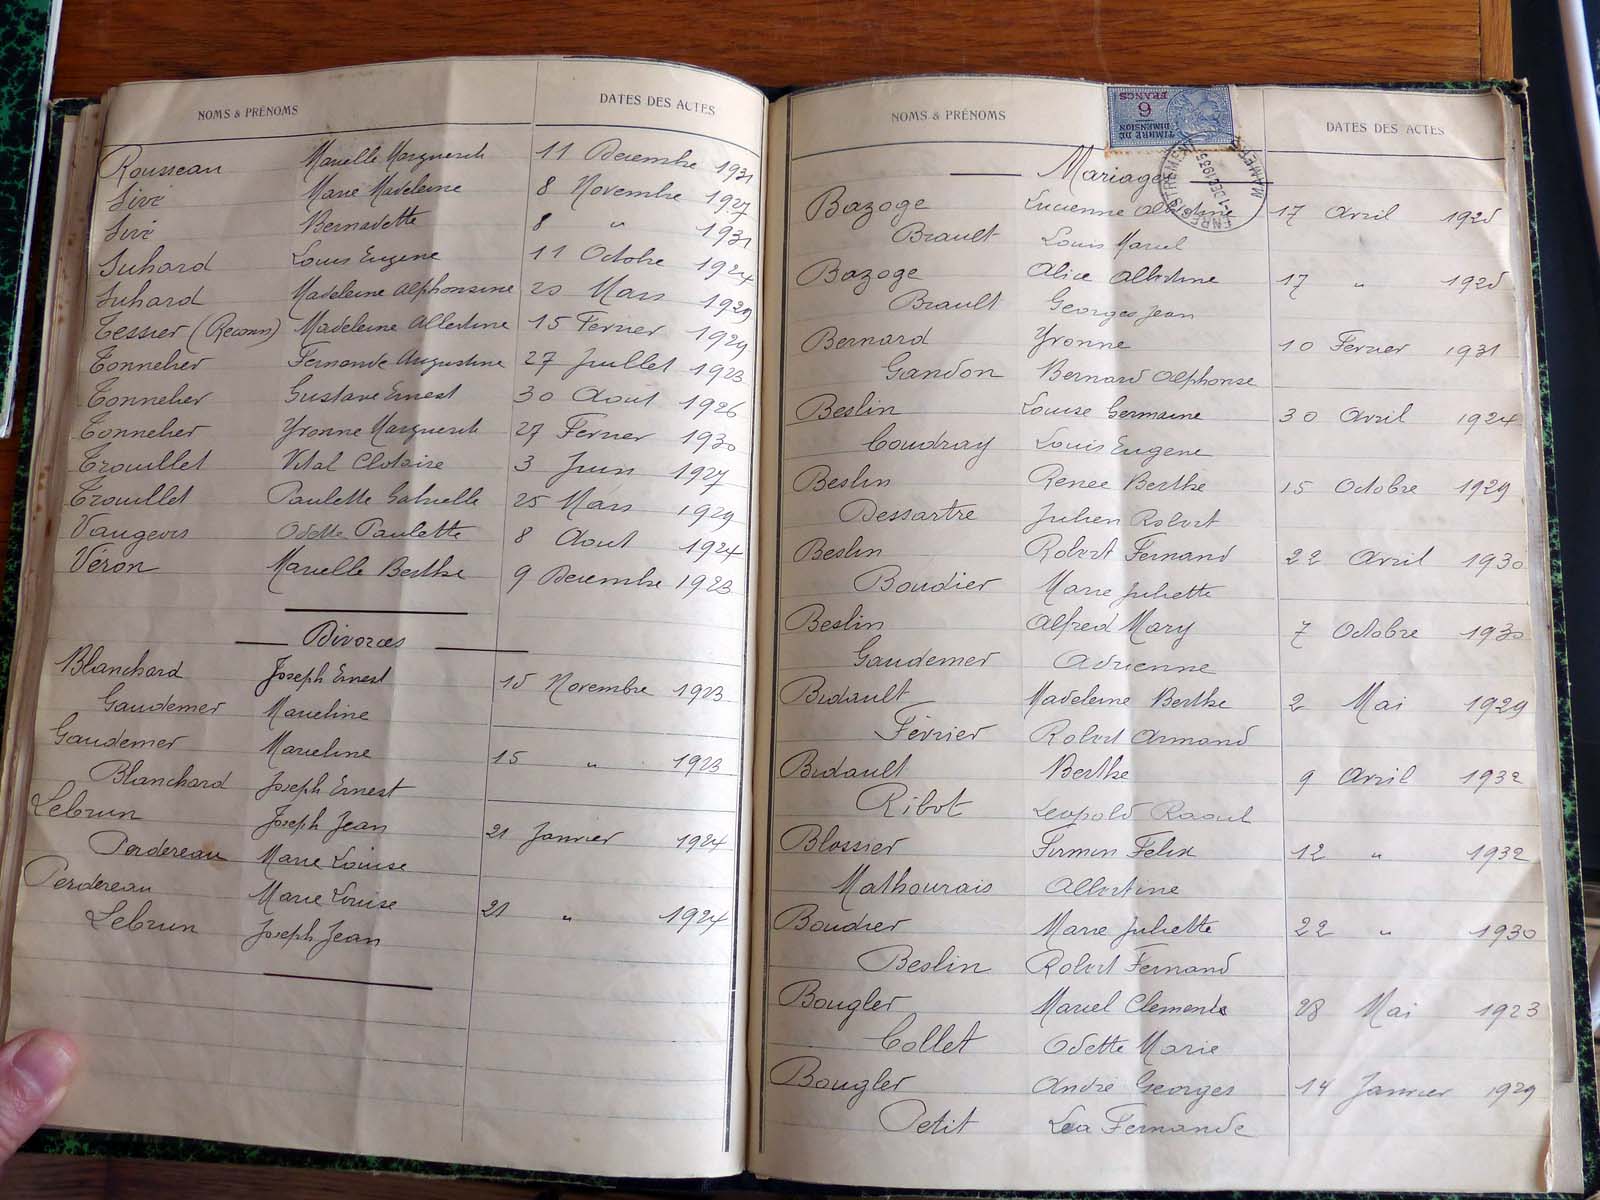 NOMS & PRÉNOMS DATES DES ACTES
Rousseau Marcelle Marguerite 11 Decembre 1931
Sivé Marie Madeleine 8 Novembre 1927
Sivé Bernadette 8 " 1931
Suhard Louis Eugene 11 Octobre 1924
Suhard Madeleine Alphonsine 20 Mars 1929
Tessier (Reconn) Madeleine Albertine 15 Fevrier 1929
Tonnelier Fernande Augustine 27 Juillet 1923
Tonnelier Gustave Ernest 30 Aout 1926
Tonnelier Yvonne Marguerite 27 Fevrier 1930
Trouillet Vital Clotaire 3 Juin 1927
Trouillet Paulette Gabrielle 25 Mars 1929
Vaugeois Odette Paulette 8 Aout 1924
Véron Marcelle Berthe 9 Decembre 1923
Divorces
Blanchard Joseph Ernest 15 Novembre 1923
Gaudemer Marceline
Gaudemer Marceline 15 " 1923
Blanchard Joseph Ernest
Lebrun Joseph Jean 21 Janvier 1924
Perdereau Marie Louise
Perdereau Marie Louise 21 " 1924
Lebrun Joseph Jean
NOMS & PRÉNOMS DATES DES ACTES
TIMBRE DE DIMENSION
6 FRANCS
ENREGISTREMENT
1 DEC 1935
Mariages
Bazoge Lucienne Albertine 17 Avril 1928
Brault Louis Marcel
Bazoge Alice Albertine 17 " 1928
Brault Georges Jean
Bernard Yvonne 10 Fevrier 1931
Gandon Bernard Alphonse
Beslin Louise Germaine 30 Avril 1924
Coudray Louis Eugene
Beslin Renée Berthe 15 Octobre 1929
Dessartre Julien Robert
Beslin Robert Fernand 22 Avril 1930
Boudier Marie Juliette
Beslin Alfred Mary 7 Octobre 1930
Gaudemer Adrienne
Bidault Madeleine Berthe 2 Mai 1929
Février Robert Armand
Bidault Berthe 9 Avril 1932
Ribot Leopold Raoul
Blossier Firmin Felix 12 " 1932
Mathourais Albertine
Boudier Marie Juliette 22 " 1930
Beslin Robert Fernand
Bougler Marcel Clement 28 Mai 1923
Collet Odette Marie
Bougler André Georges 14 Janvier 1929
Petit Lea Fernande